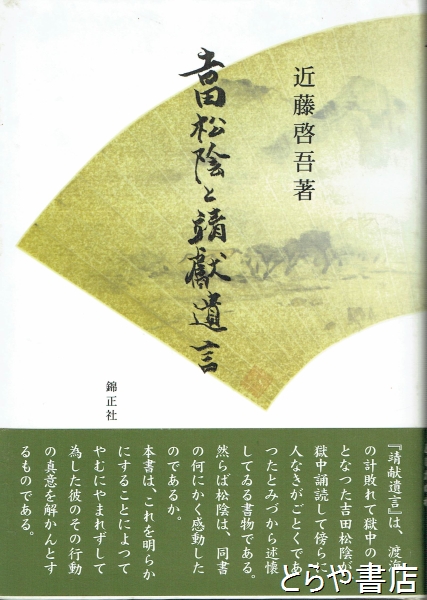 近藤啓吾著
吉田松陰と靖献遺言
錦正社
『靖献遺言』は、渡海
の計敗れて獄中の
となつた吉田松陰が、
獄中誦読して傍らに
人なきがごとくであ
つたとみづから述懐
してゐる書物である。
然らば松陰は、同書
の何にかく感動した
のであるか。
本書は、これを明らか
にすることによつて
やむにやまれずして
為した彼のその行動
の真意を解かんとす
るものである。
とらや書店